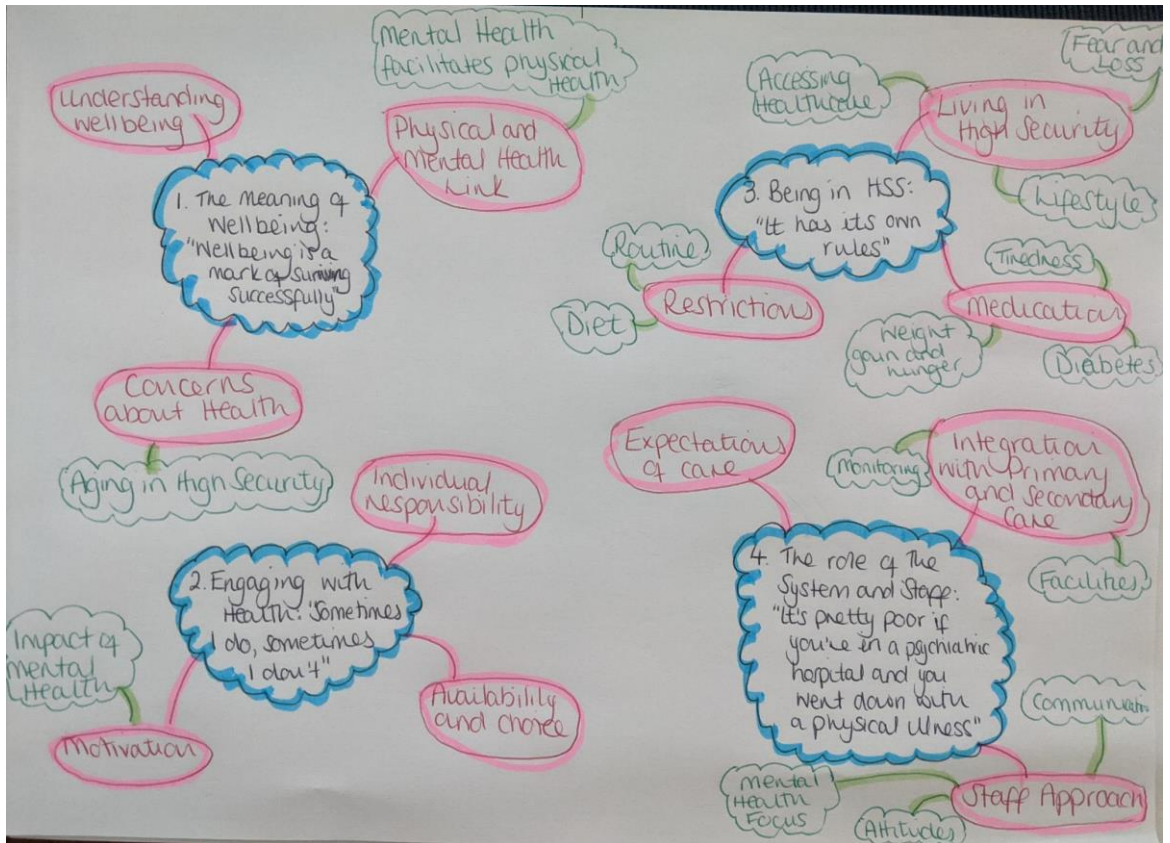 Understanding
Wellbeing
Mental Health
facilitates physical
Health
Physical and
Mental Health
Link
1. The Meaning of
Wellbeing:
"Wellbeing is a
mark of surviving
successfully"
Concerns
about Health
Aging in High Security
Individual
responsibility
2. Engaging with
Health: "Sometimes
I do, sometimes
I don't"
Impact of
mental
Health
Motivation
Availability
and choice
Fear and
Loss
Accessing
Healthcare
Living in
High Security
Lifestyle
3. Being in HSS:
"It has its own
rules"
Routine
Restrictions
Diet
Tiredness
Medication
Weight
gain and
hunger
Diabetes
Expectations
of care
Monitoring
Integration
with Primary
and Secondary
Care
Facilities
4. The role of the
System and Staff:
"It's pretty poor if
you're in a psychiatric
hospital and you
went down with
a physical illness"
Communication
Mental
Health
Focus
Attitudes
Staff Approach